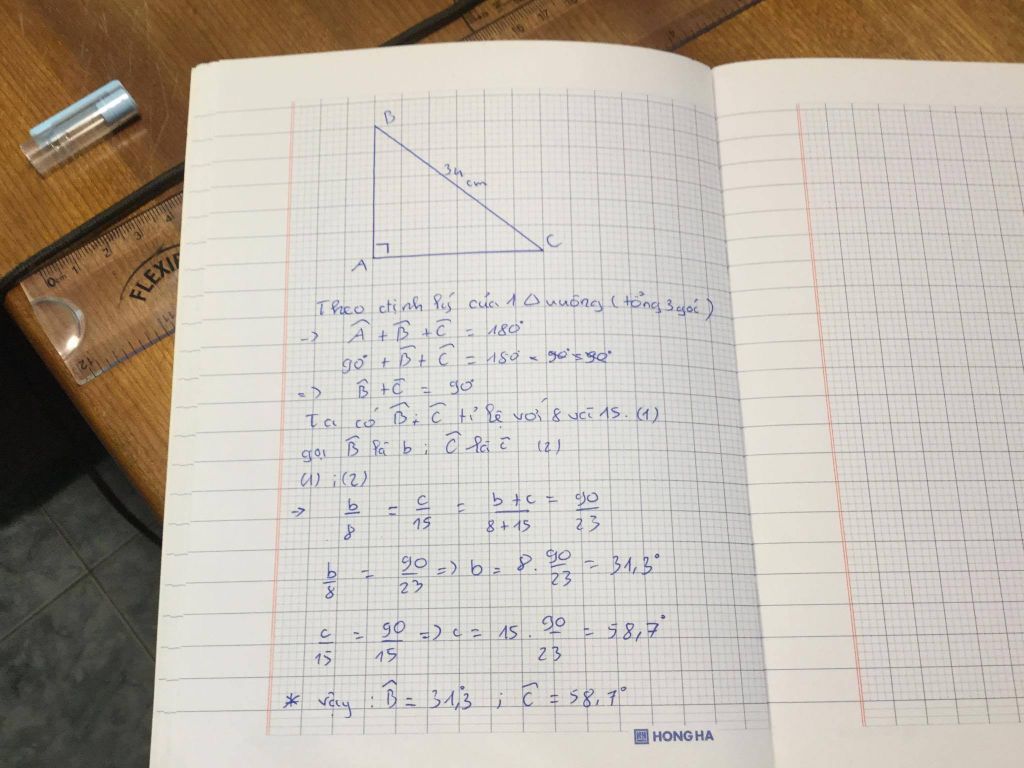 B
34 cm
A
C
Theo định lý của 1 Δ vuông (tổng 3 góc)
-> Â + B̂ + Ĉ = 180°
90° + B̂ + Ĉ = 180 - 90° = 90°
=> B̂ + Ĉ = 90°
Ta có B̂; Ĉ tỉ lệ với 8 và 15. (1)
gọi B̂ là b; Ĉ là c (2)
(1) ; (2)
-> b/8 = c/15 = b+c/8+15 = 90/23
b/8 = 90/23 => b = 8 . 90/23 = 31,3°
c/15 = 90/15 => c = 15 . 90/23 = 58,7°
* vậy : B̂ = 31,3° ; Ĉ = 58,7°
HONG HA
FLEXIP
0cm 1 2 3 4
12
15 16 17